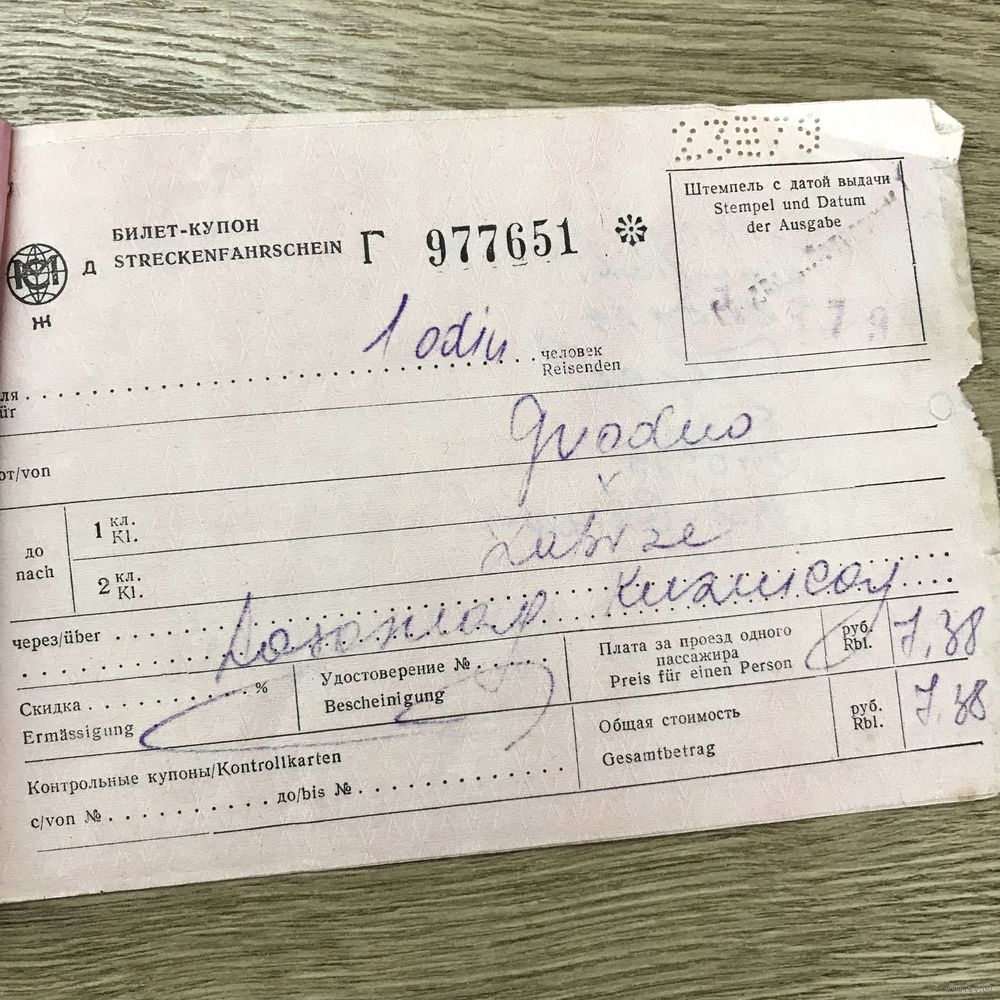 23 79
Штемпель с датой выдачи
Stempel und Datum
der Ausgabe
МСП
Д
Ж
БИЛЕТ-КУПОН
STRECKENFAHRSCHEIN
Г 977651
1 odin
человек
Reisenden
ля
ür
от/von
Grodno
до
nach
1 кл.
Kl.
2 кл.
Kl.
Zabrze
через/über
Скидка %
Ermässigung
Удостоверение №
Bescheinigung
Плата за проезд одного
пассажира
Preis für einen Person
руб.
Rbl.
7,38
Общая стоимость
Gesamtbetrag
руб.
Rbl.
7,38
Контрольные купоны/Kontrollkarten
с/von № до/bis №